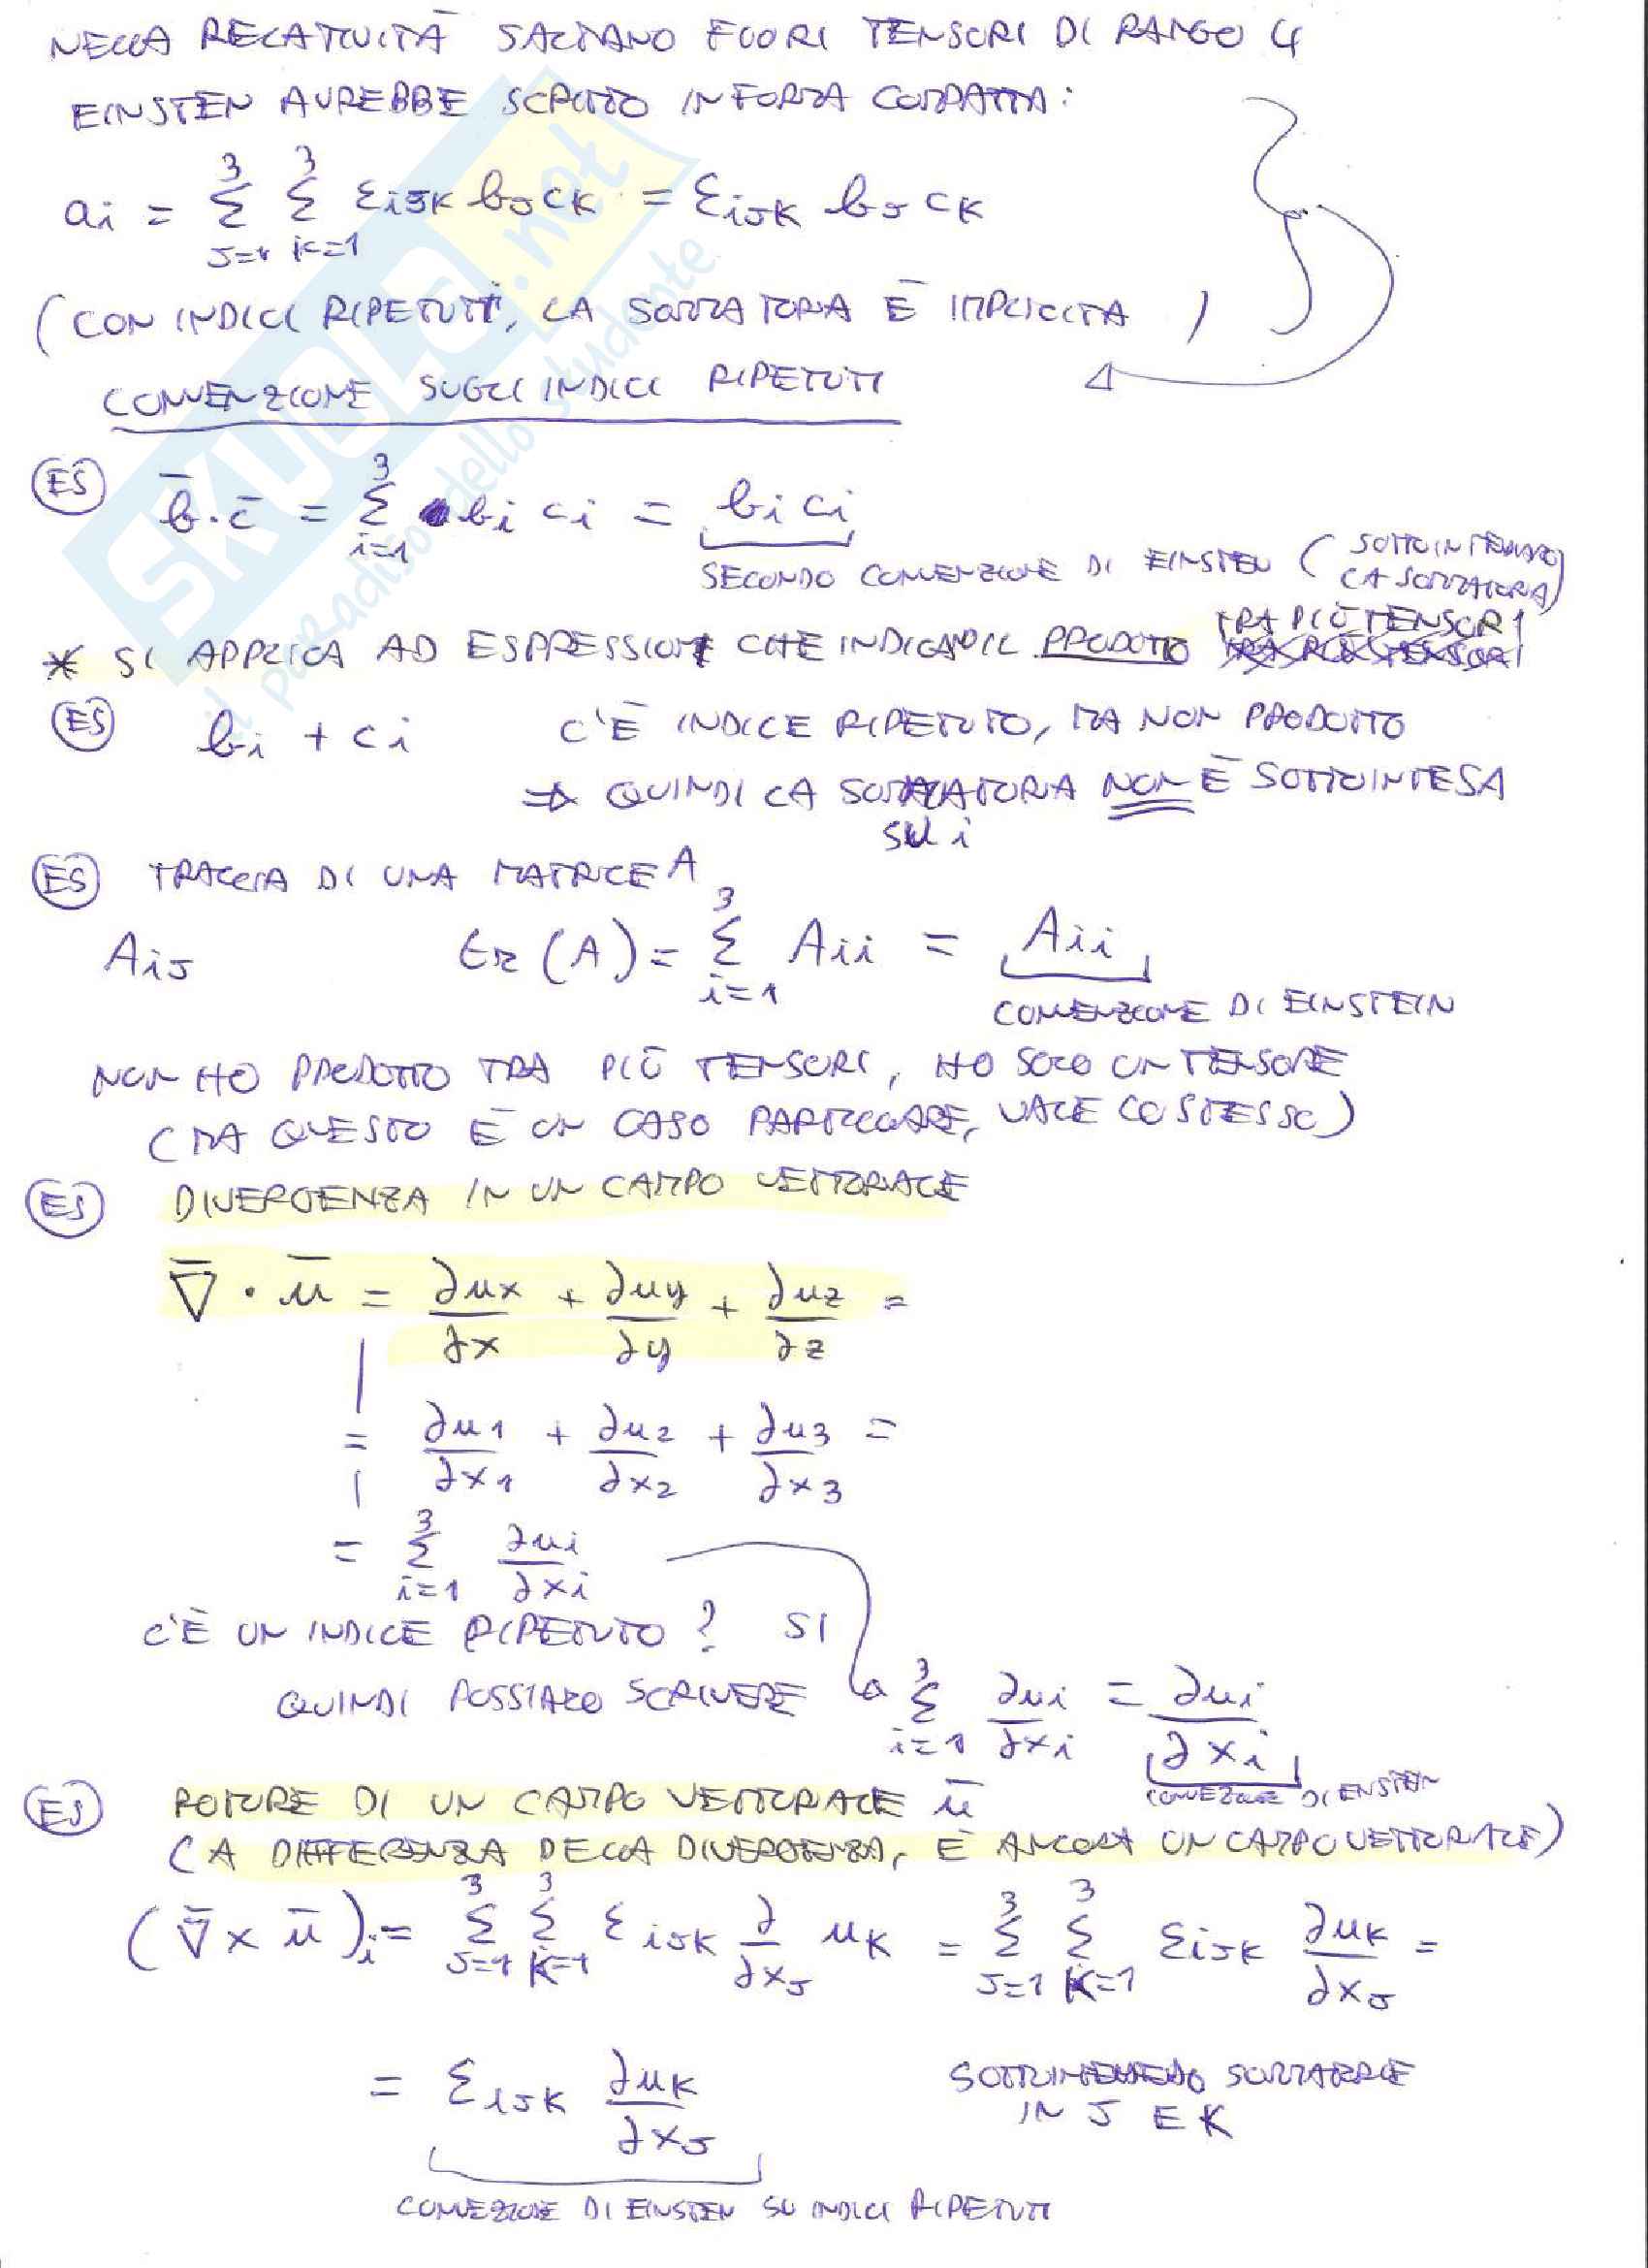 NELLA RELATIVITÀ SALTANO FUORI TENSORI DI RANGO 4
EINSTEN AVREBBE SCRITTO IN FORMA COMPATTA:
ai = Σ_{J=1}^{3} Σ_{K=1}^{3} εiJK bJ cK = εiJK bJ cK
(CON INDICI RIPETUTI, LA SOMMATORIA È IMPLICITA )
CONVENZIONE SUGLI INDICI RIPETUTI
ES b̄ · c̄ = Σ_{i=1}^{3} bi ci = bi ci
SECONDO CONVENZIONE DI EINSTEN (SOTTOINTENDENDO LA SOMMATORIA)
* SI APPLICA AD ESPRESSIONI CHE INDICANO IL PRODOTTO TRA PIÙ TENSORI
ES bi + ci C'È INDICE RIPETUTO, MA NON PRODOTTO
⇒ QUINDI LA SOMMATORIA NON È SOTTOINTESA
SU i
ES TRACCIA DI UNA MATRICE A
AiJ tr (A) = Σ_{i=1}^{3} Aii = Aii
CONVENZIONE DI EINSTEIN
NON HO PRODOTTO TRA PIÙ TENSORI, HO SOLO UN TENSORE
(MA QUESTO È UN CASO PARTICOLARE, VALE LO STESSO)
ES DIVERGENZA IN UN CAMPO VETTORIALE
∇̄ · ū = ∂ux/∂x + ∂uy/∂y + ∂uz/∂z =
= ∂u1/∂x1 + ∂u2/∂x2 + ∂u3/∂x3 =
= Σ_{i=1}^{3} ∂ui/∂xi
C'È UN INDICE RIPETUTO? SI
QUINDI POSSIAMO SCRIVERE Σ_{i=1}^{3} ∂ui/∂xi = ∂ui/∂xi
CONVEZIONE DI EINSTEIN
ES ROTORE DI UN CAMPO VETTORIALE ū
(A DIFFERENZA DELLA DIVERGENZA, È ANCORA UN CAMPO VETTORIALE)
(∇̄ × ū)i = Σ_{J=1}^{3} Σ_{K=1}^{3} εiJK ∂/∂xJ uK = Σ_{J=1}^{3} Σ_{K=1}^{3} εiJK ∂uK/∂xJ =
= εiJK ∂uK/∂xJ SOTTOINTENDENDO SOMMATORIE
IN J E K
CONVEZIONE DI EINSTEN SU INDICI RIPETUTI
SKUOLA.net
il paradiso dello studente